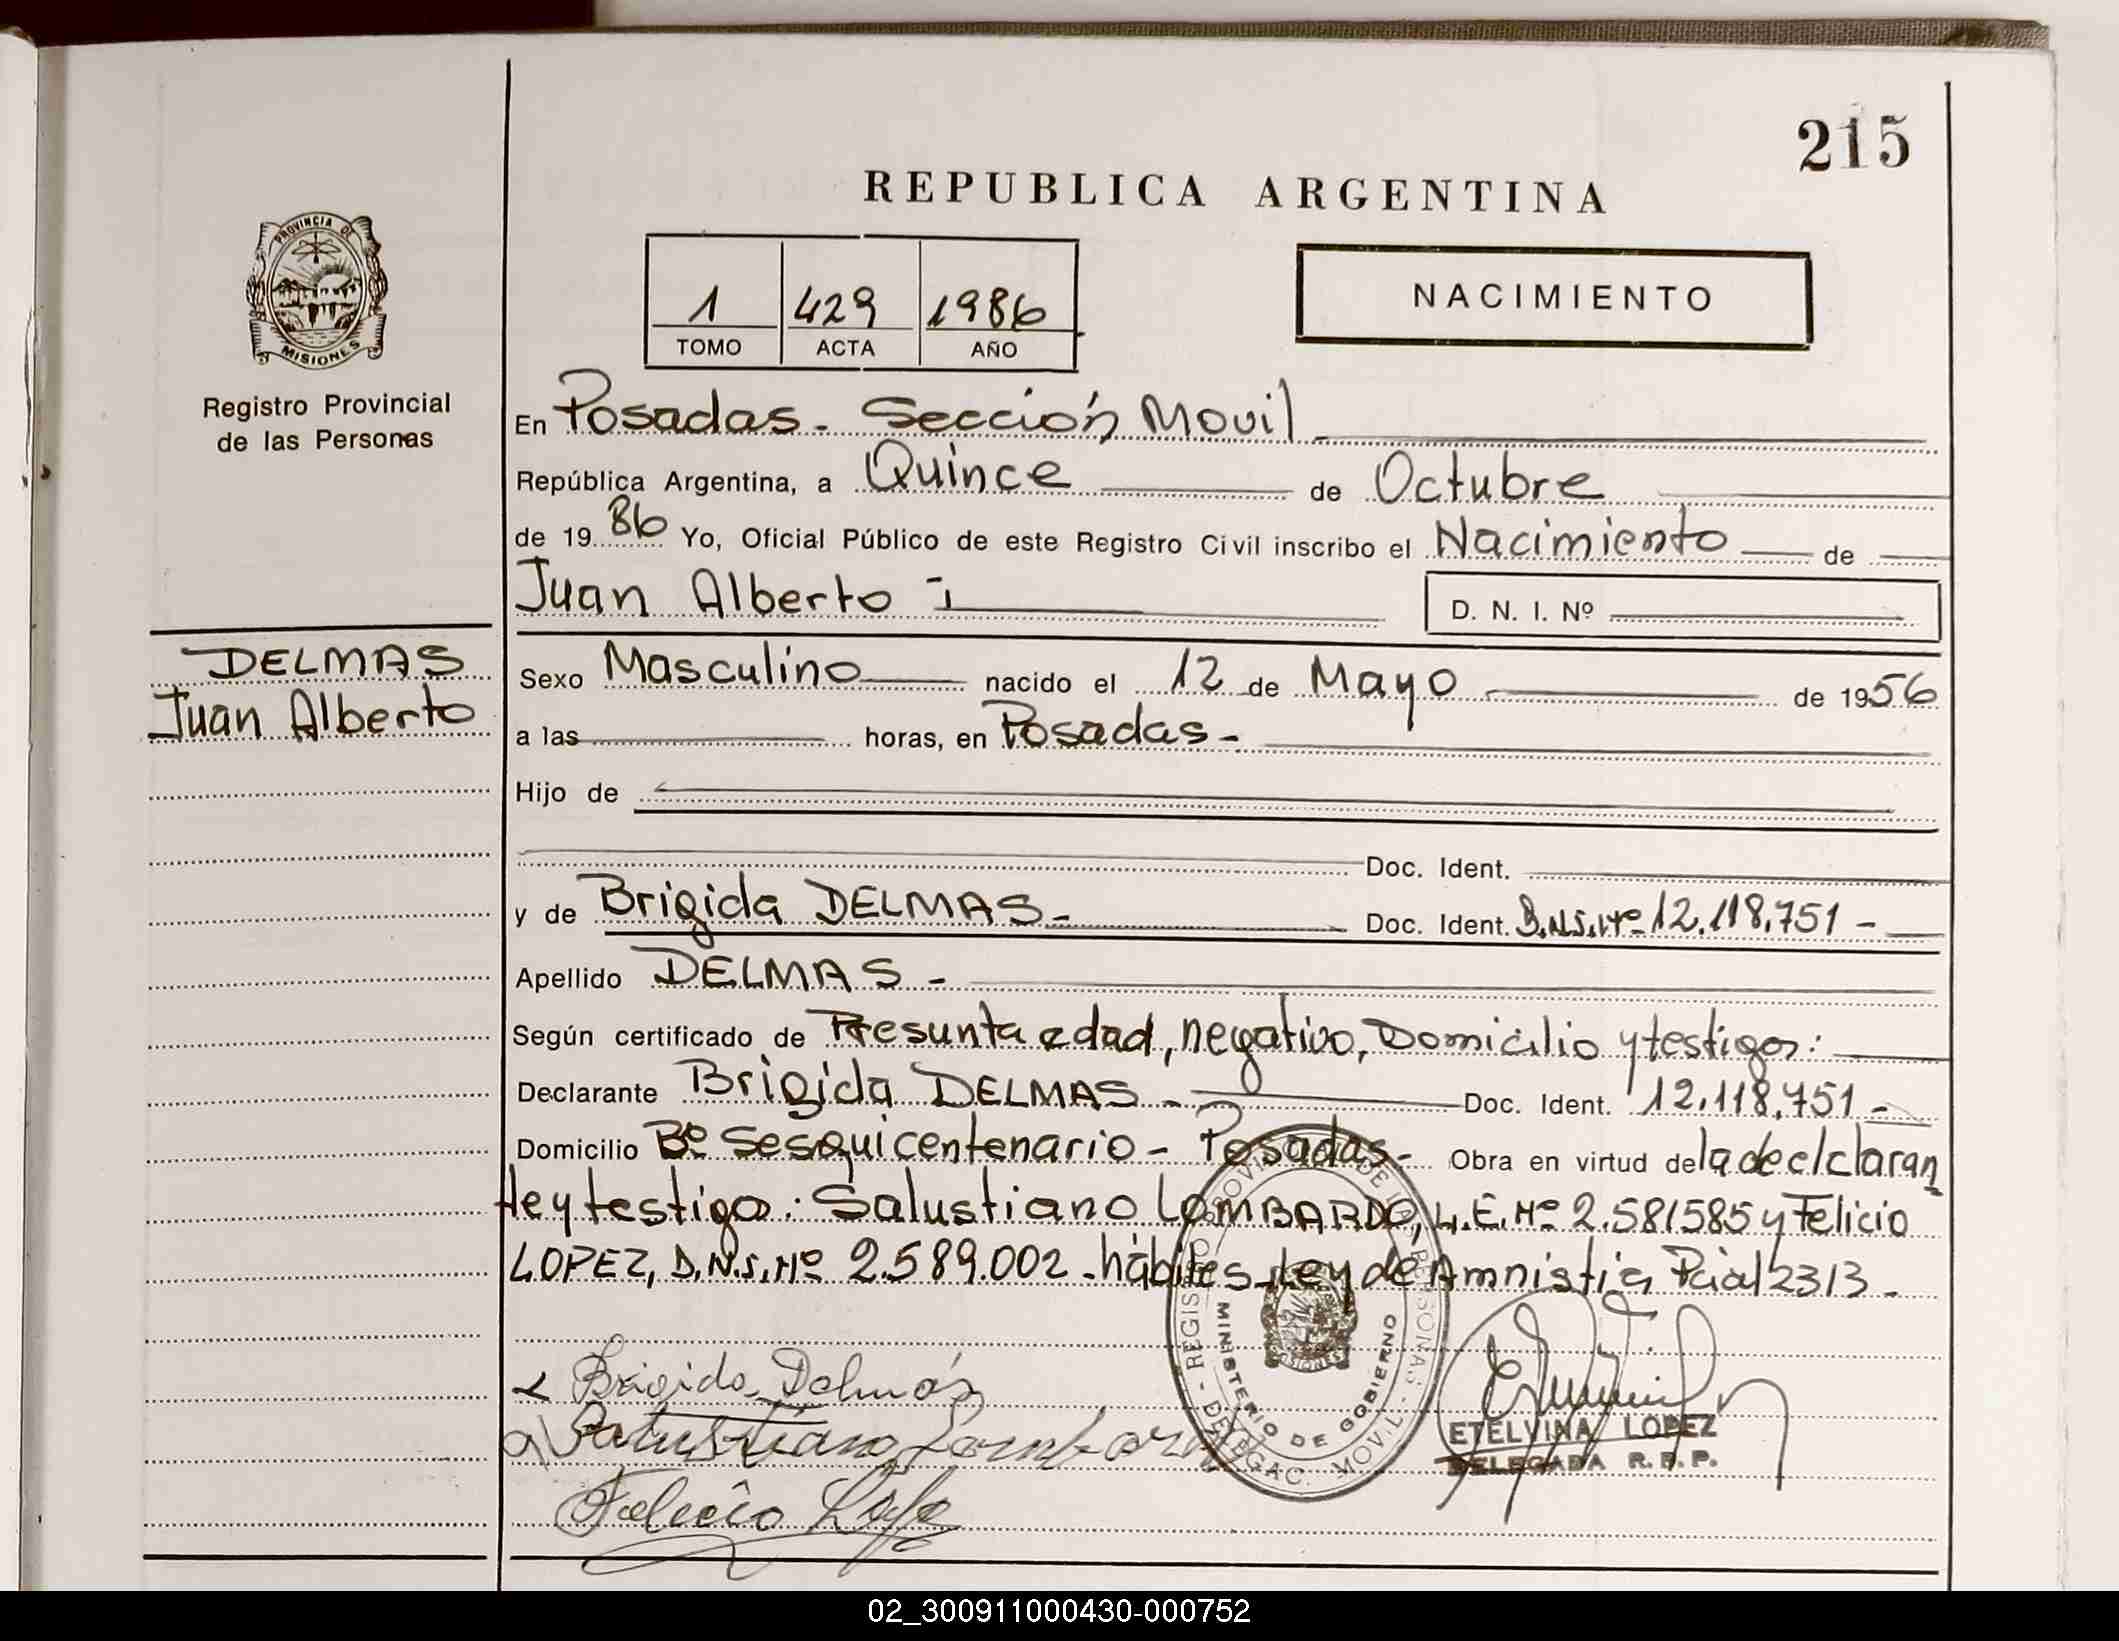 215
REPUBLICA ARGENTINA
PROVINCIA DE
MISIONES
Registro Provincial
de las Personas
1 429 1986
TOMO ACTA AÑO
NACIMIENTO
En Posadas - Sección Movil
República Argentina, a Quince de Octubre
de 1986 Yo, Oficial Público de este Registro Civil inscribo el Nacimiento de
Juan Alberto
D. N. I. Nº
DELMAS
Juan Alberto
Sexo Masculino nacido el 12 de Mayo de 1956
a las horas, en Posadas -
Hijo de
Doc. Ident.
y de Brigida DELMAS - Doc. Ident. D.N.I.Nº 12.118.751 -
Apellido DELMAS -
Según certificado de Presunta edad, negativo, Domicilio y testigos:
Declarante Brigida DELMAS - Doc. Ident. 12.118.751 -
Domicilio Bº Sesquicentenario - Posadas - Obra en virtud de la declaran
te y testigo: Salustiano LOMBARDO, L.E.Nº 2.581585 y Felicio
LOPEZ, D.N.I.Nº 2.589.002 - hábiles - Ley de Amnistia Pcial 2313 -
REGISTRO PROVINCIAL DE LAS PERSONAS - DELEGAC. MOVIL -
MINISTERIO DE GOBIERNO
MISIONES
Brigida Delmás
Salustiano Lombardo
Felicio
ETELVINA LOPEZ
DELEGADA R. P. P.
02_300911000430-000752